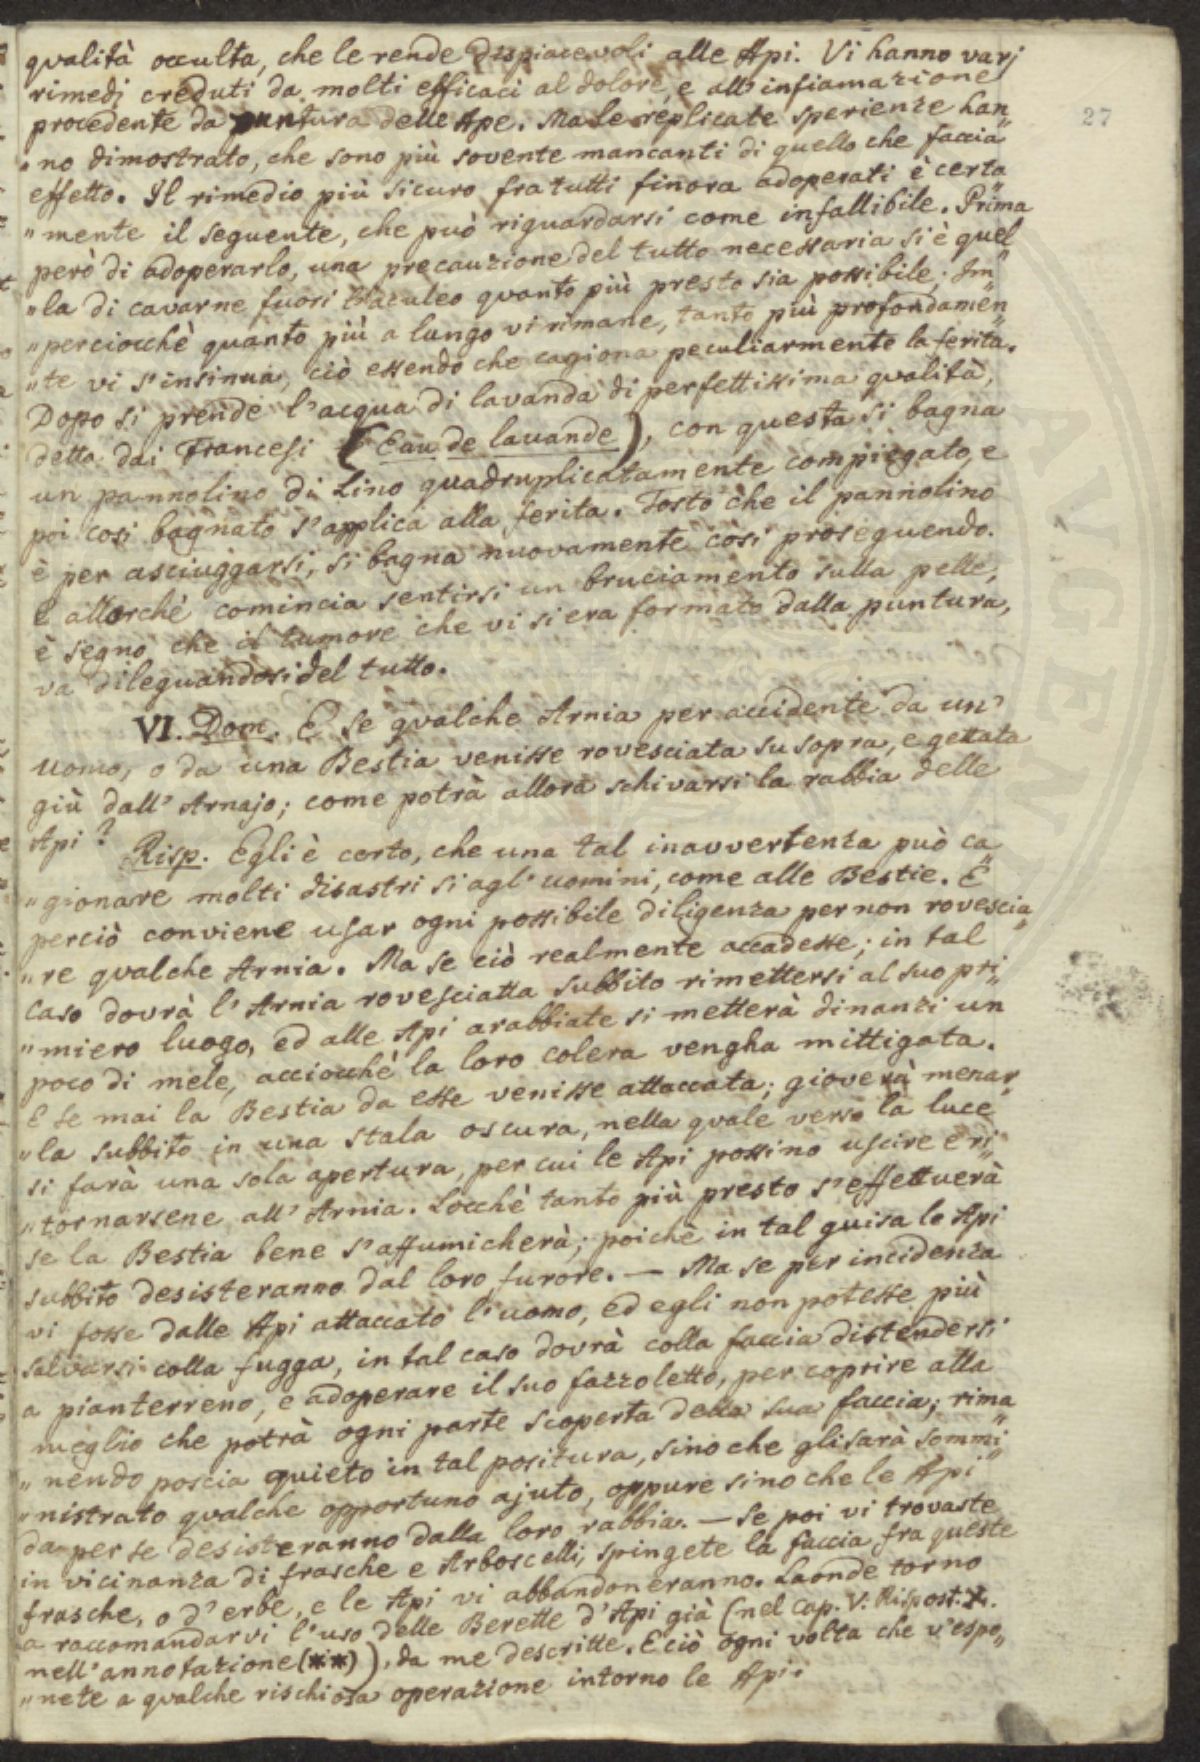 qvalità occulta, che le rende dispiacevoli alle Api. Vi hanno varj
rimedj creduti da molti efficaci al dolore, e all'infiamazione
procedente da puntura delle Ape. Ma le replicate sperienze han„
„no dimostrato, che sono più sovente mancanti di quello che faccia
effetto. Il rimedio più sicuro fra tutti finora adoperati è certa„
„mente il seguente, che può riguardarsi come infallibile. Prima
però di adoperarlo, una precauzione del tutto necessaria si è quel„
„la di cavarne fuori l'aculeo quanto più presto sia possibile; Im„
„perciocchè quanto più a lungo vi rimane, tanto più profondamen„
„te vi s'insinua, ciò essendo che cagiona peculiarmente la ferita.
Dopo si prende l'acqua di lavanda di perfettissima qvalità,
detta dai Francesi (Eau de lavande), con questa si bagna
un pannolino di Lino quadruplicatamente compiegato, e
poi così bagnato s'applica alla ferita. Tosto che il pannolino
è per asciuggarsi, si bagna nuovamente così proseguendo.
E allorchè comincia sentirsi un bruciamento sulla pelle,
è segno, che il tumore che vi si era formato dalla puntura,
va dileguandosi del tutto.
VI. Dom. E se qvalche Arnia per accidente da un'
Uomo, o da una Bestia venisse rovesciata susopra, e gettata
giù dall'Arnajo; come potrà allora schivarsi la rabbia delle
Api?
Risp. Egli è certo, che una tal inavvertenza può ca„
„gionare molti disastri si agl'uomini, come alle Bestie. E
perciò conviene usar ogni possibile diligenza per non rovescia„
„re qvalche Arnia. Ma se ciò realmente accadesse; in tal
caso dovrà l'Arnia rovesciatta subbito rimettersi al suo pri„
„miero luogo, ed alle Api arabbiate si metterà dinanzi un
poco di mele, acciocchè la loro colera vengha mittigata.
E se mai la Bestia da esse venisse attaccata; gioverà menar„
„la subbito in una stala oscura, nella quale verso la luce
si farà una sola apertura, per cui le Api possino uscire e ri„
„tornarsene all'Arnia. Locchè tanto più presto s'effettuerà
se la Bestia bene s'affumicherà; poichè in tal guisa le Api
subbito desisteranno dal loro furore. — Ma se per incidenza
vi fosse dalle Api attaccato l'uomo, ed egli non potesse più
salvarsi colla fugga, in tal caso dovrà colla faccia distendersi
a pianterreno, e adoperare il suo fazzoletto, per coprire alla
meglio che potrà ogni parte scoperta della sua faccia; rima„
„nendo poscia quieto in tal positura, sino che gli sarà sommi„
„nistrato qvalche opportuno ajuto, oppure sino che le Api
da per se desisteranno dalla loro rabbia. — Se poi vi trovaste
in vicinanza di frasche e Arboscelli, spingete la faccia fra queste
frasche, o d'erbe, e le Api vi abbandoneranno. Laonde torno
a raccomandarvi l'uso delle Berette d'Api già (nel Cap. V. Rispost.
nell'annotazione (**)), da me descritte. E ciò ogni volta che v'espo„
„nete a qvalche rischiosa operazione intorno le Api.
27